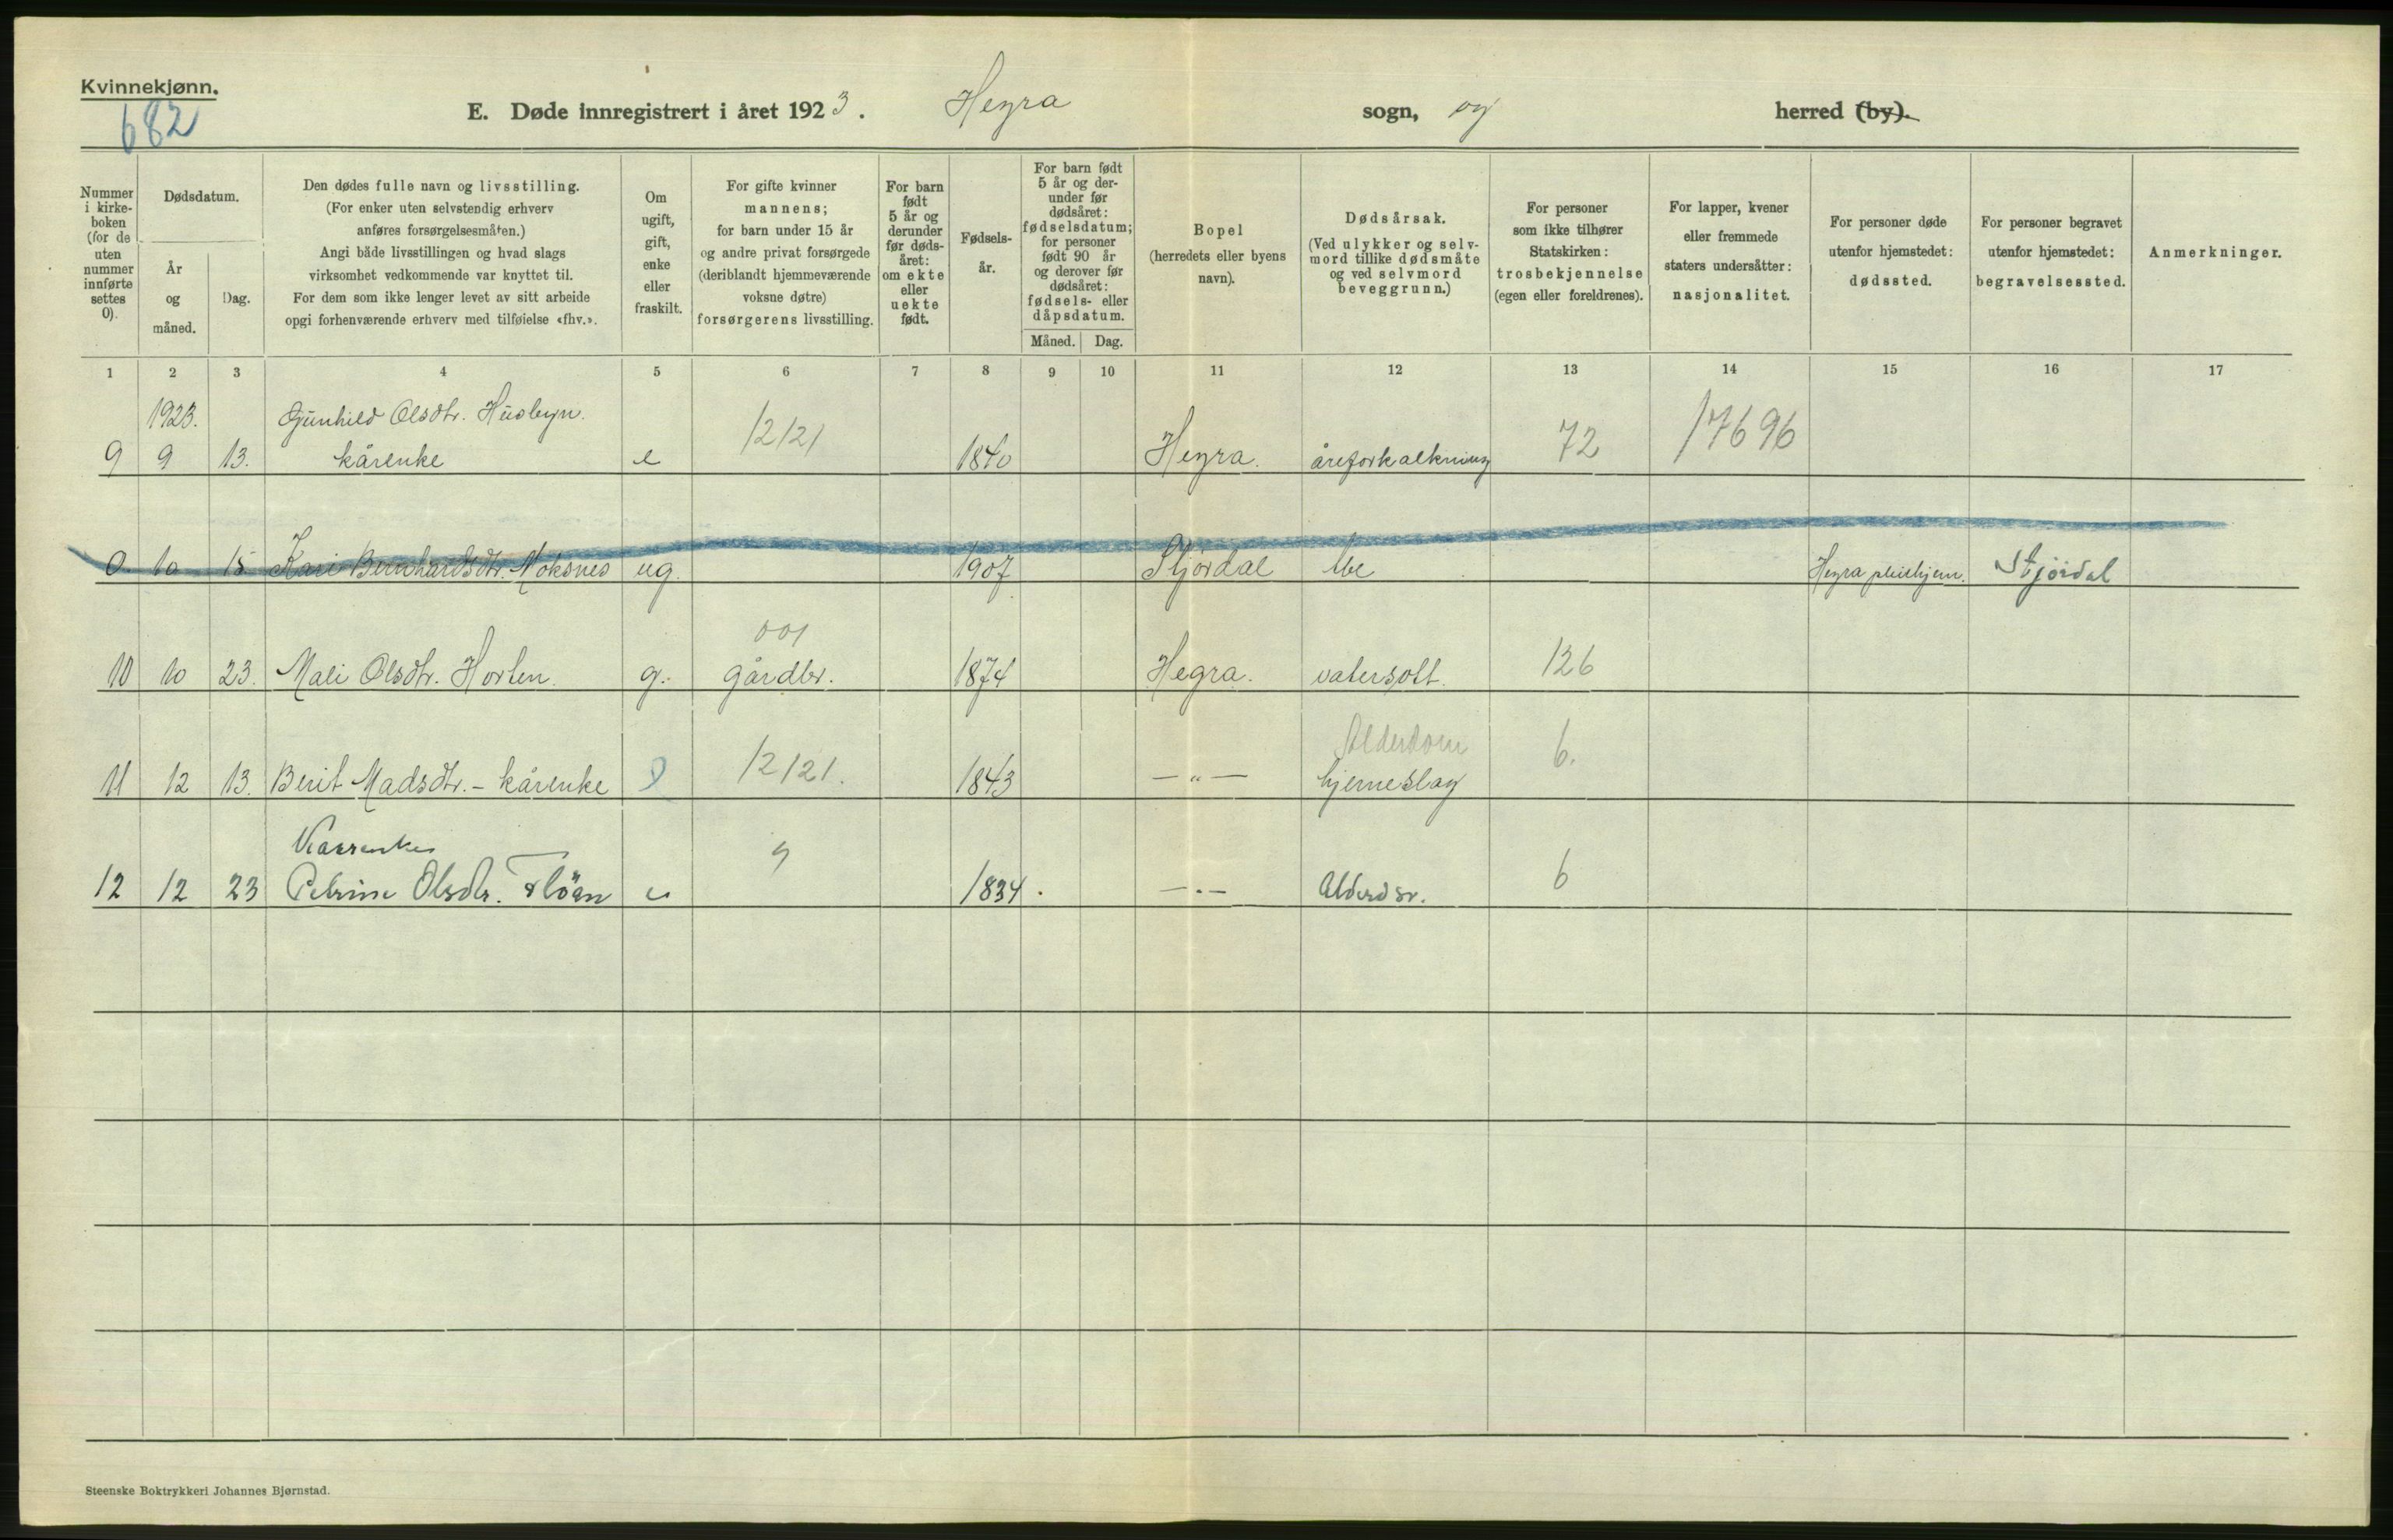 Kvinnekjønn.
682
E. Døde innregistrert i året 1923. Hegra sogn, og herred (by).
Nummer i kirkeboken (for de uten nummer innførte settes 0).
Dødsdatum.
År og måned.
Dag.
Den dødes fulle navn og livsstilling.
(For enker uten selvstendig erhverv
anføres forsørgelsesmåten.)
Angi både livsstillingen og hvad slags
virksomhet vedkommende var knyttet til.
For dem som ikke lenger levet av sitt arbeide
opgi forhenværende erhverv med tilføielse «fhv.».
Om ugift, gift, enke eller fraskilt.
For gifte kvinner
mannens;
for barn under 15 år
og andre privat forsørgede
(deriblandt hjemmeværende
voksne døtre)
forsørgerens livsstilling.
For barn født 5 år og derunder før dødsåret: om ekte eller uekte født.
Fødselsår.
For barn født 5 år og derunder før dødsåret: fødselsdatum; for personer født 90 år og derover før dødsåret: fødsels- eller dåpsdatum.
Måned. Dag.
Bopel
(herredets eller byens
navn).
Dødsårsak.
(Ved ulykker og selv-
mord tillike dødsmåte
og ved selvmord
beveggrunn.)
For personer
som ikke tilhører
Statskirken:
trosbekjennelse
(egen eller foreldrenes).
For lapper, kvener
eller fremmede
staters undersåtter:
nasjonalitet.
For personer døde
utenfor hjemstedet:
dødssted.
For personer begravet
utenfor hjemstedet:
begravelsessted.
Anmerkninger.
1 2 3 4 5 6 7 8 9 10 11 12 13 14 15 16 17
1923. Gunhild Olsdtr. Husbyn.
9 9 13. kårenke e 12121 1840 Hegra. åreforkalkning 72 17696
0. 10 15 Kari Bernhardsdtr. Moksnes ug. 1907 Stjørdal tbc Hegra pleiehjem. Stjørdal
001
10 10 23. Mali Olsdtr. Horten. g. gårdbr. 1874 Hegra. vatersott. 126
Alderdom
11 12 13. Berit Madsdtr. - kårenke e 12121. 1843 — " — hjerneslag 6.
Kaarenke
12 12 23 Petrine Olsdtr. Flöan e 9 1834. — " — Alderdsv. 6
Steenske Boktrykkeri Johannes Bjørnstad.